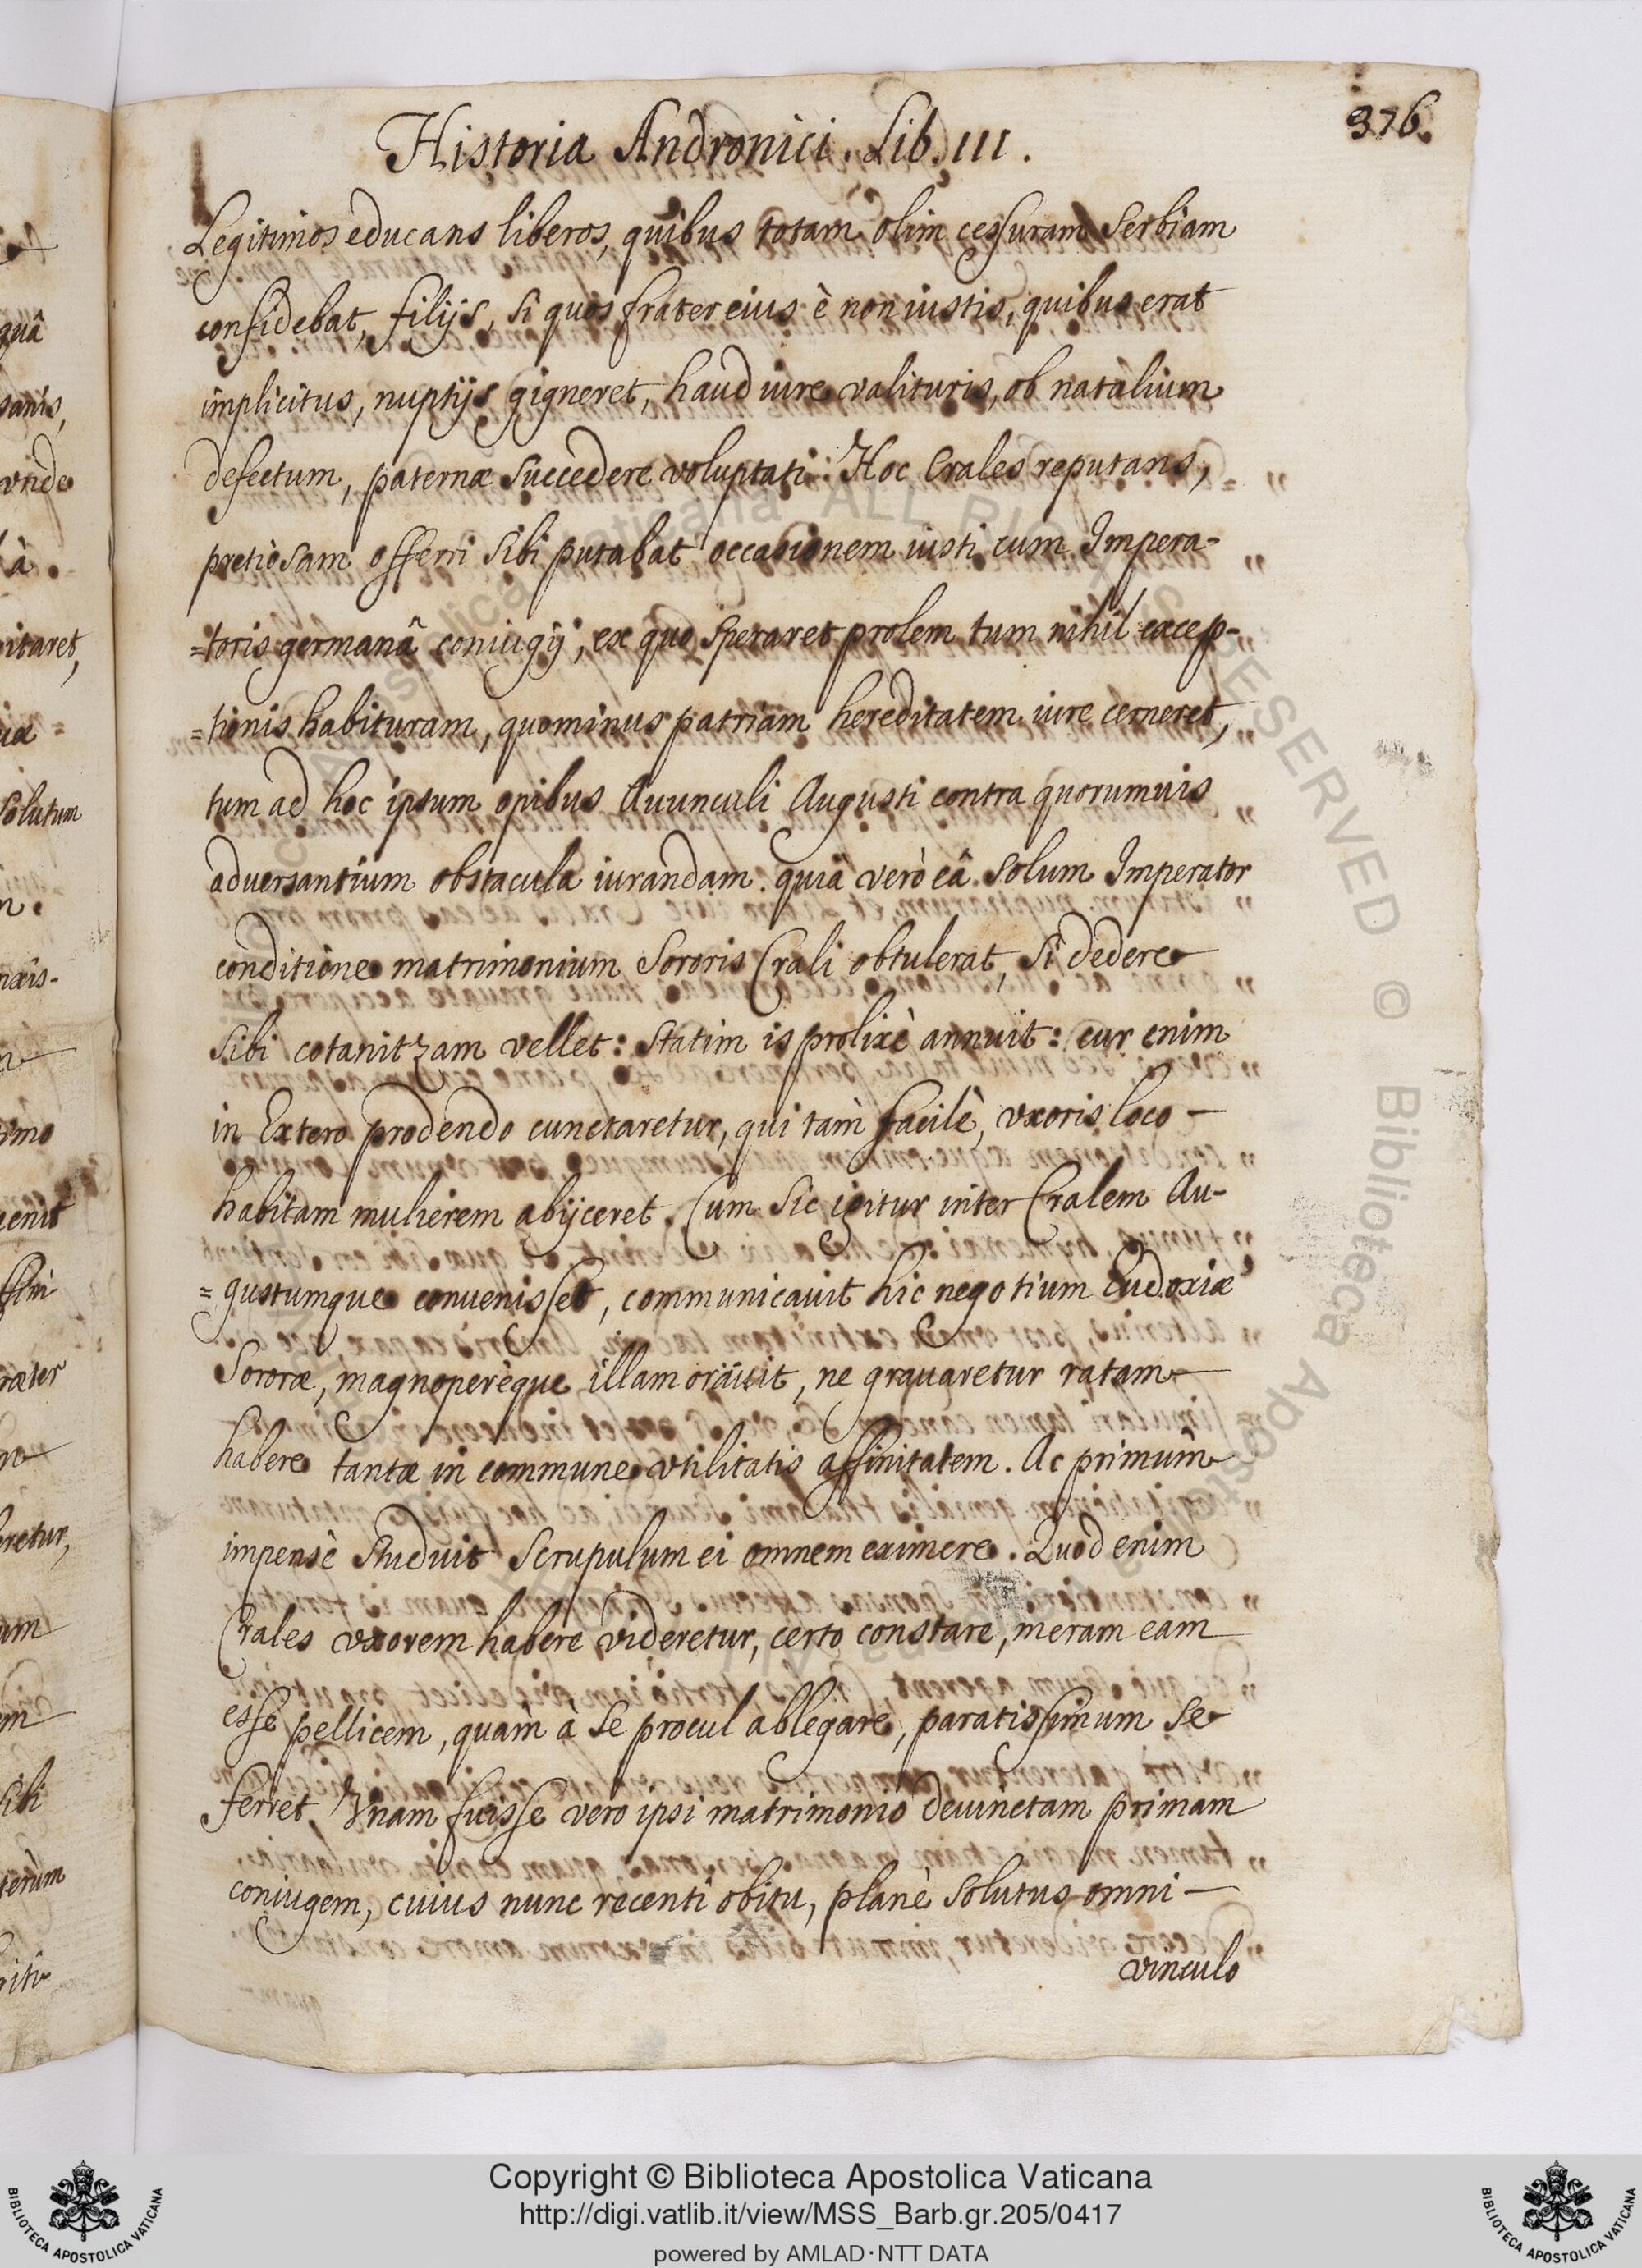 376.
Historia Andronici. Lib. III.
Legitimos educans liberos, quibus totam olim cessuram Serbiam
confidebat, filijs, si quos frater eius è non iustis, quibus erat
implicitus, nuptijs gigneret, haud iure valituris, ob natalium
defectum, paternæ succedere voluptati: Hoc Crales reputans,
pretiosam offerri sibi putabat occasionem iusti cum Impera-
=toris germanâ coniugij, ex quo speraret prolem tum nihil excep-
=tionis habituram, quominus patriam hereditatem iure cerneret,
tum ad hoc ipsum opibus Auunculi Augusti contra quorumuis
aduersantium obstacula iurandam. quia verò eâ solum Imperator
conditione matrimonium Sororis Crali obtulerat, si dedere
sibi cotanitzam vellet: statim is prolixè annuit: cur enim
in Extero prodendo cunctaretur, qui tam facilè, vxoris loco —
habitam mulierem abijceret. Cum sic igitur inter Cralem Au-
=gustumque conuenisset, communicauit hic negotium Eudoxiæ
Sororæ, magnoperèque illam orauit, ne grauaretur ratam
habere tantæ in commune vtilitatis affinitatem. Ac primum
impensè studuit scrupulum ei omnem eximere. Quod enim
Crales vxorem habere videretur, certo constare, meram eam
esse pellicem, quam à se procul ablegare, paratissimum se
ferret. Vnam fuisse vero ipsi matrimonio deuinctam primam
coniugem, cuius nunc recenti obitu, planè solutus omni —
vinculo
quâ
vnde
à.
itaret,
solutum
imo
uenit
ræter
retur,
sibi
Copyright © Biblioteca Apostolica Vaticana
http://digi.vatlib.it/view/MSS_Barb.gr.205/0417
powered by AMLAD·NTT DATA
BIBLIOTECA APOSTOLICA VATICANA
BIBLIOTECA APOSTOLICA VATICANA